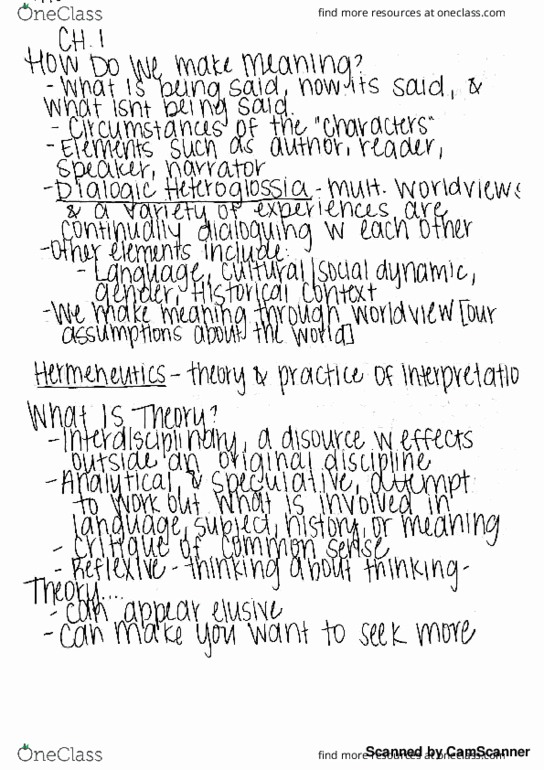 OneClass
find more resources at oneclass.com
CH. 1
HOW DO WE make Meaning?
- What is being said, how its said, &
what isnt being said.
- Circumstances of the "Characters"
- Elements such as author, reader,
speaker, narrator
- Dialogic Heteroglossia - mult. worldviews
& a variety of experiences are
continually dialoguing w each other
- Other elements include:
- Language, cultural/social dynamic,
gender, Historical context
- We make meaning through worldview [our
assumptions about the world]
Hermeneutics - theory & practice of interpretatio
What Is Theory?
- Interdisciplinary, a disource w effects
outside an original discipline
- Analytical & speculative, attempt
to work out what is involved in
language, subject, history, or meaning
- Critique of common sense
- Reflexive - thinking about thinking -
Theory....
- can appear elusive
- can make you want to seek more
OneClass
find more resources at oneclass.com
Scanned by CamScanner